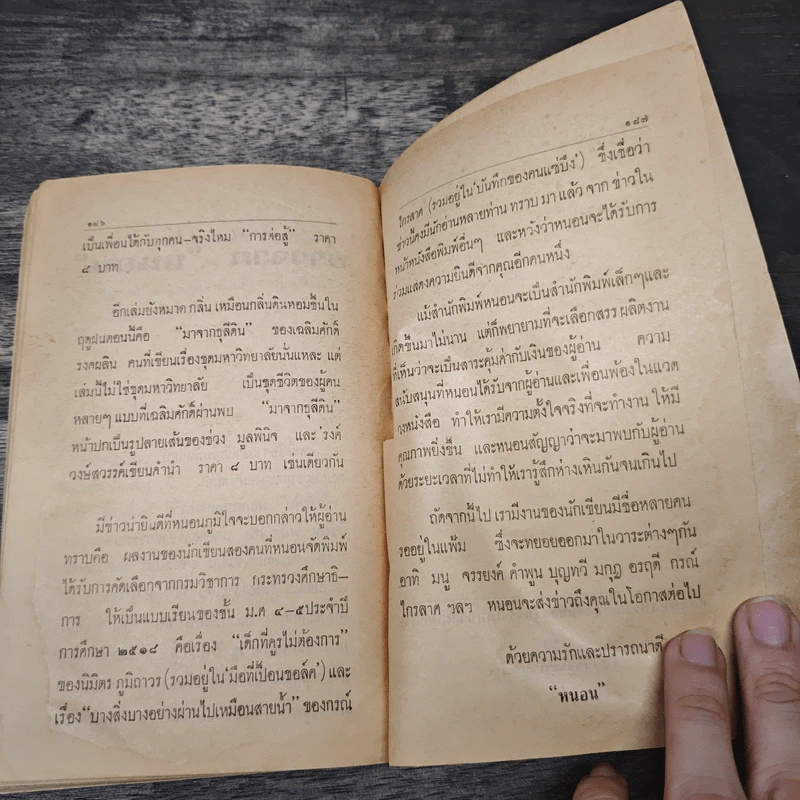 ๑๘๖
เป็นเพื่อนได้กับทุกคน–จริงไหม “การต่อสู้” ราคา
๘ บาท
อีกเล่มยังหมาด กลิ่น เหมือนกลิ่นดินหอมชื้นใน
ฤดูฝนตอนนี้คือ “มาจากธุลีดิน” ของเฉลิมศักดิ์
รงคผลิน คนที่เขียนเรื่องชุดมหาวิทยาลัยนั้นแหละ แต่
เล่มนี้ไม่ใช่ชุดมหาวิทยาลัย เป็นชุดชีวิตของผู้คน
หลายๆ แบบที่เฉลิมศักดิ์ผ่านพบ “มาจากธุลีดิน”
หน้าปกเป็นรูปลายเส้นของช่วง มูลพินิจ และ ’รงค์
วงษ์สวรรค์เขียนคำนำ ราคา ๘ บาท เช่นเดียวกัน
มีข่าวน่ายินดีที่หนอนภูมิใจจะบอกกล่าวให้ผู้อ่าน
ทราบคือ ผลงานของนักเขียนสองคนที่หนอนจัดพิมพ์
ได้รับการคัดเลือกจากกรมวิชาการ กระทรวงศึกษาธิ–
การ ให้เป็นแบบเรียนของชั้น ม.ศ ๔–๕ประจำปี
การศึกษา ๒๕๑๘ คือเรื่อง “เด็กที่ครูไม่ต้องการ”
ของนิมิตร ภูมิถาวร (รวมอยู่ใน‘มือที่เปื้อนชอล์ค’) และ
เรื่อง“บางสิ่งบางอย่างผ่านไปเหมือนสายน้ำ” ของกรณ์
๑๘๗
ไกรลาศ (รวมอยู่ใน‘บันทึกของคนแซ่บึง’) ซึ่งเชื่อว่า
ข่าวนี้คงมีนักอ่านหลายท่าน ทราบ มา แล้ว จาก ข่าวใน
หน้าหนังสือพิมพ์อื่นๆ และหวังว่าหนอนจะได้รับการ
ร่วมแสดงความยินดีจากคุณอีกคนหนึ่ง
แม้สำนักพิมพ์หนอนจะเป็นสำนักพิมพ์เล็กๆและ
เกิดขึ้นมาไม่นาน แต่ก็พยายามที่จะเลือกสรร ผลิตงาน
ที่เห็นว่าจะเป็นสาระคุ้มค่ากับเงินของผู้อ่าน ความ
สนับสนุนที่หนอนได้รับจากผู้อ่านและเพื่อนพ้องในแวด
วงหนังสือ ทำให้เรามีความตั้งใจจริงที่จะทำงาน ให้มี
คุณภาพยิ่งขึ้น และหนอนสัญญาว่าจะมาพบกับผู้อ่าน
ด้วยระยะเวลาที่ไม่ทำให้เรารู้สึกห่างเหินกันจนเกินไป
ถัดจากนี้ไป เรามีงานของนักเขียนมีชื่อหลายคน
รออยู่ในแฟ้ม ซึ่งจะทยอยออกมาในวาระต่างๆกัน
อาทิ มนู จรรยงค์ คำพูน บุญทวี มกุฎ อรฤดี กรณ์
ไกรลาศ ฯลฯ หนอนจะส่งข่าวถึงคุณในโอกาสต่อไป
ด้วยความรักและปรารถนาดี
“หนอน”